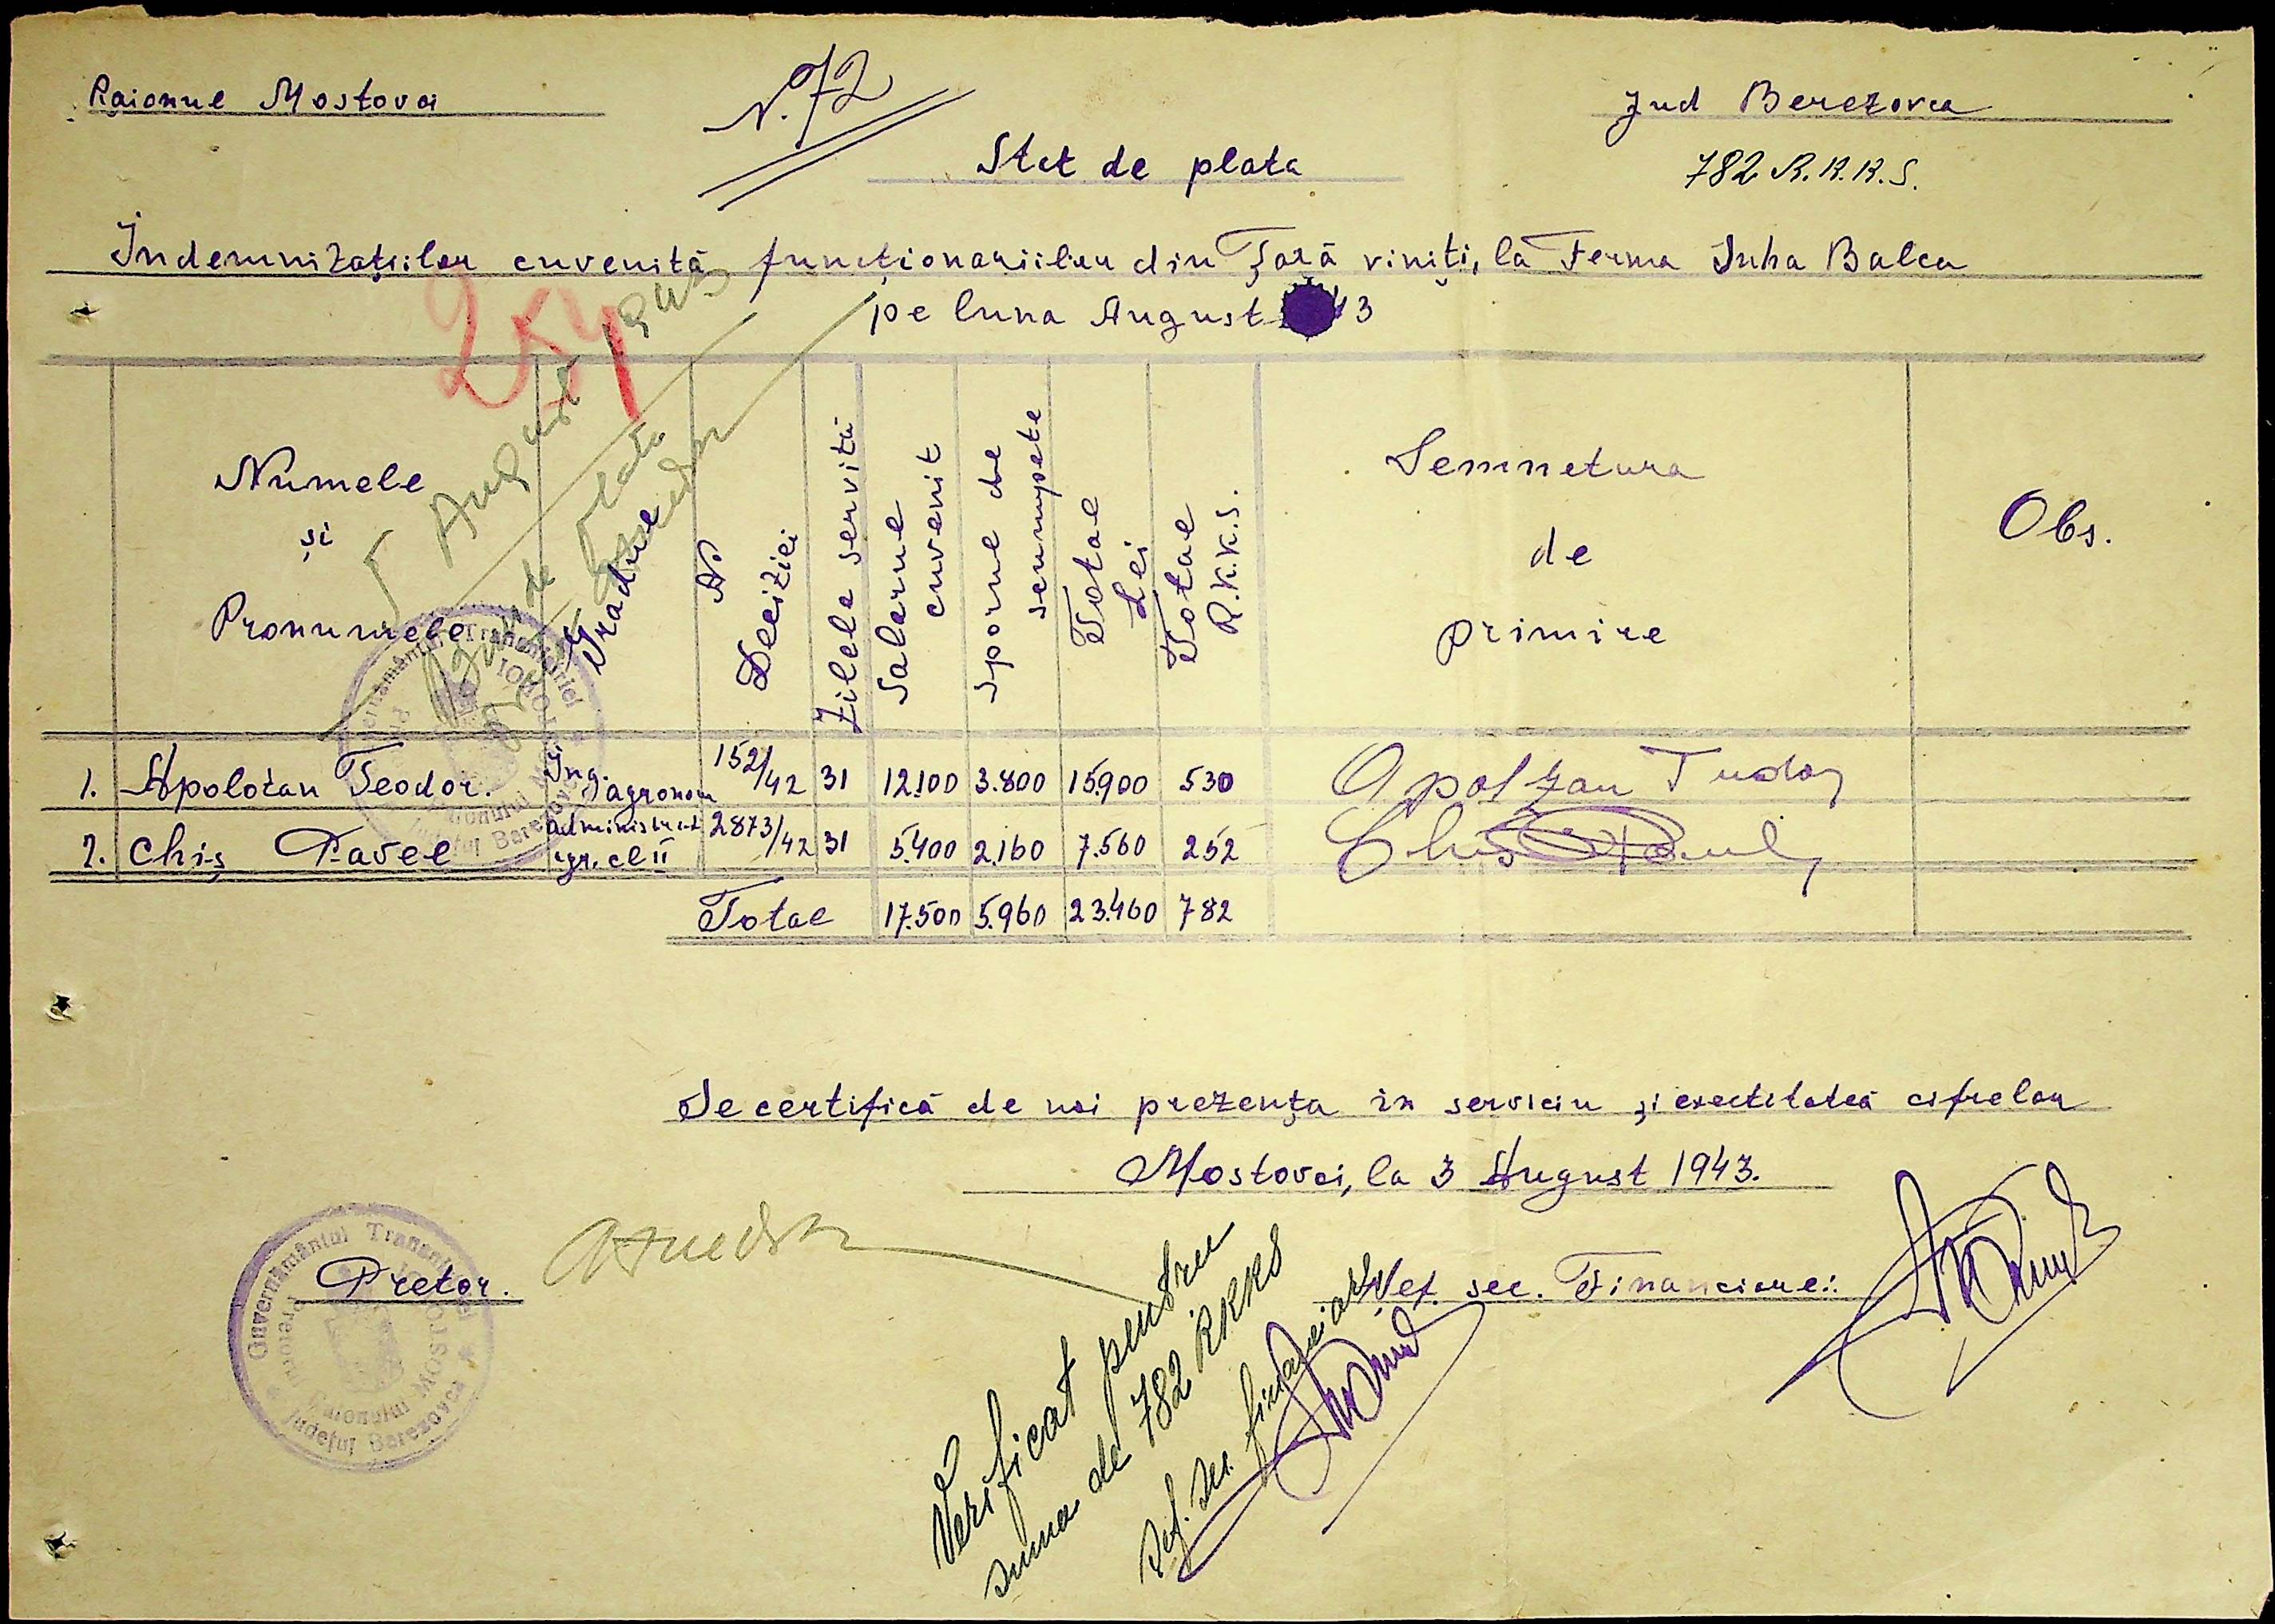 Raionul Mostovoi
N. 72
Jud Berezovca
Stat de plata
782 R.K.K.S.
Indemnizațiilor cuvenită funcționariilor din Țară viniți, la Ferma Suha Balca
pe luna August 43
254
5 August 1943
Numele
și
Pronumele
Gradul
No
Deciziei
Zilele servitii
Salarul
cuvenit
Sporul de
scumpete
Total
Lei
Total
R.K.K.S.
Semnatura
de
primire
Obs.
1. Apolozan Teodor. Ing. agronom 152/42 31 12.100 3.800 15.900 530 Apolzan Tudor
2. Chiș Pavel administrat. agr. cl II 2873/42 31 5.400 2.160 7.560 252 Chis Paul
Total 17.500 5.960 23.460 782
Guvernământul Transnistriei
Pretorul Raionului MOSTOVOI
Județul Berezovca
Se certifică de noi prezența in serviciu și exactitatea cifrelor
Mostovoi, la 3 August 1943.
Pretor.
Șef. sec. Financiarei:
Verificat pentru
suma de 782 RKKS
Șef. sec. financiară
Guvernământul Transnistriei
Pretorul Raionului MOSTOVOI
Județul Berezovca